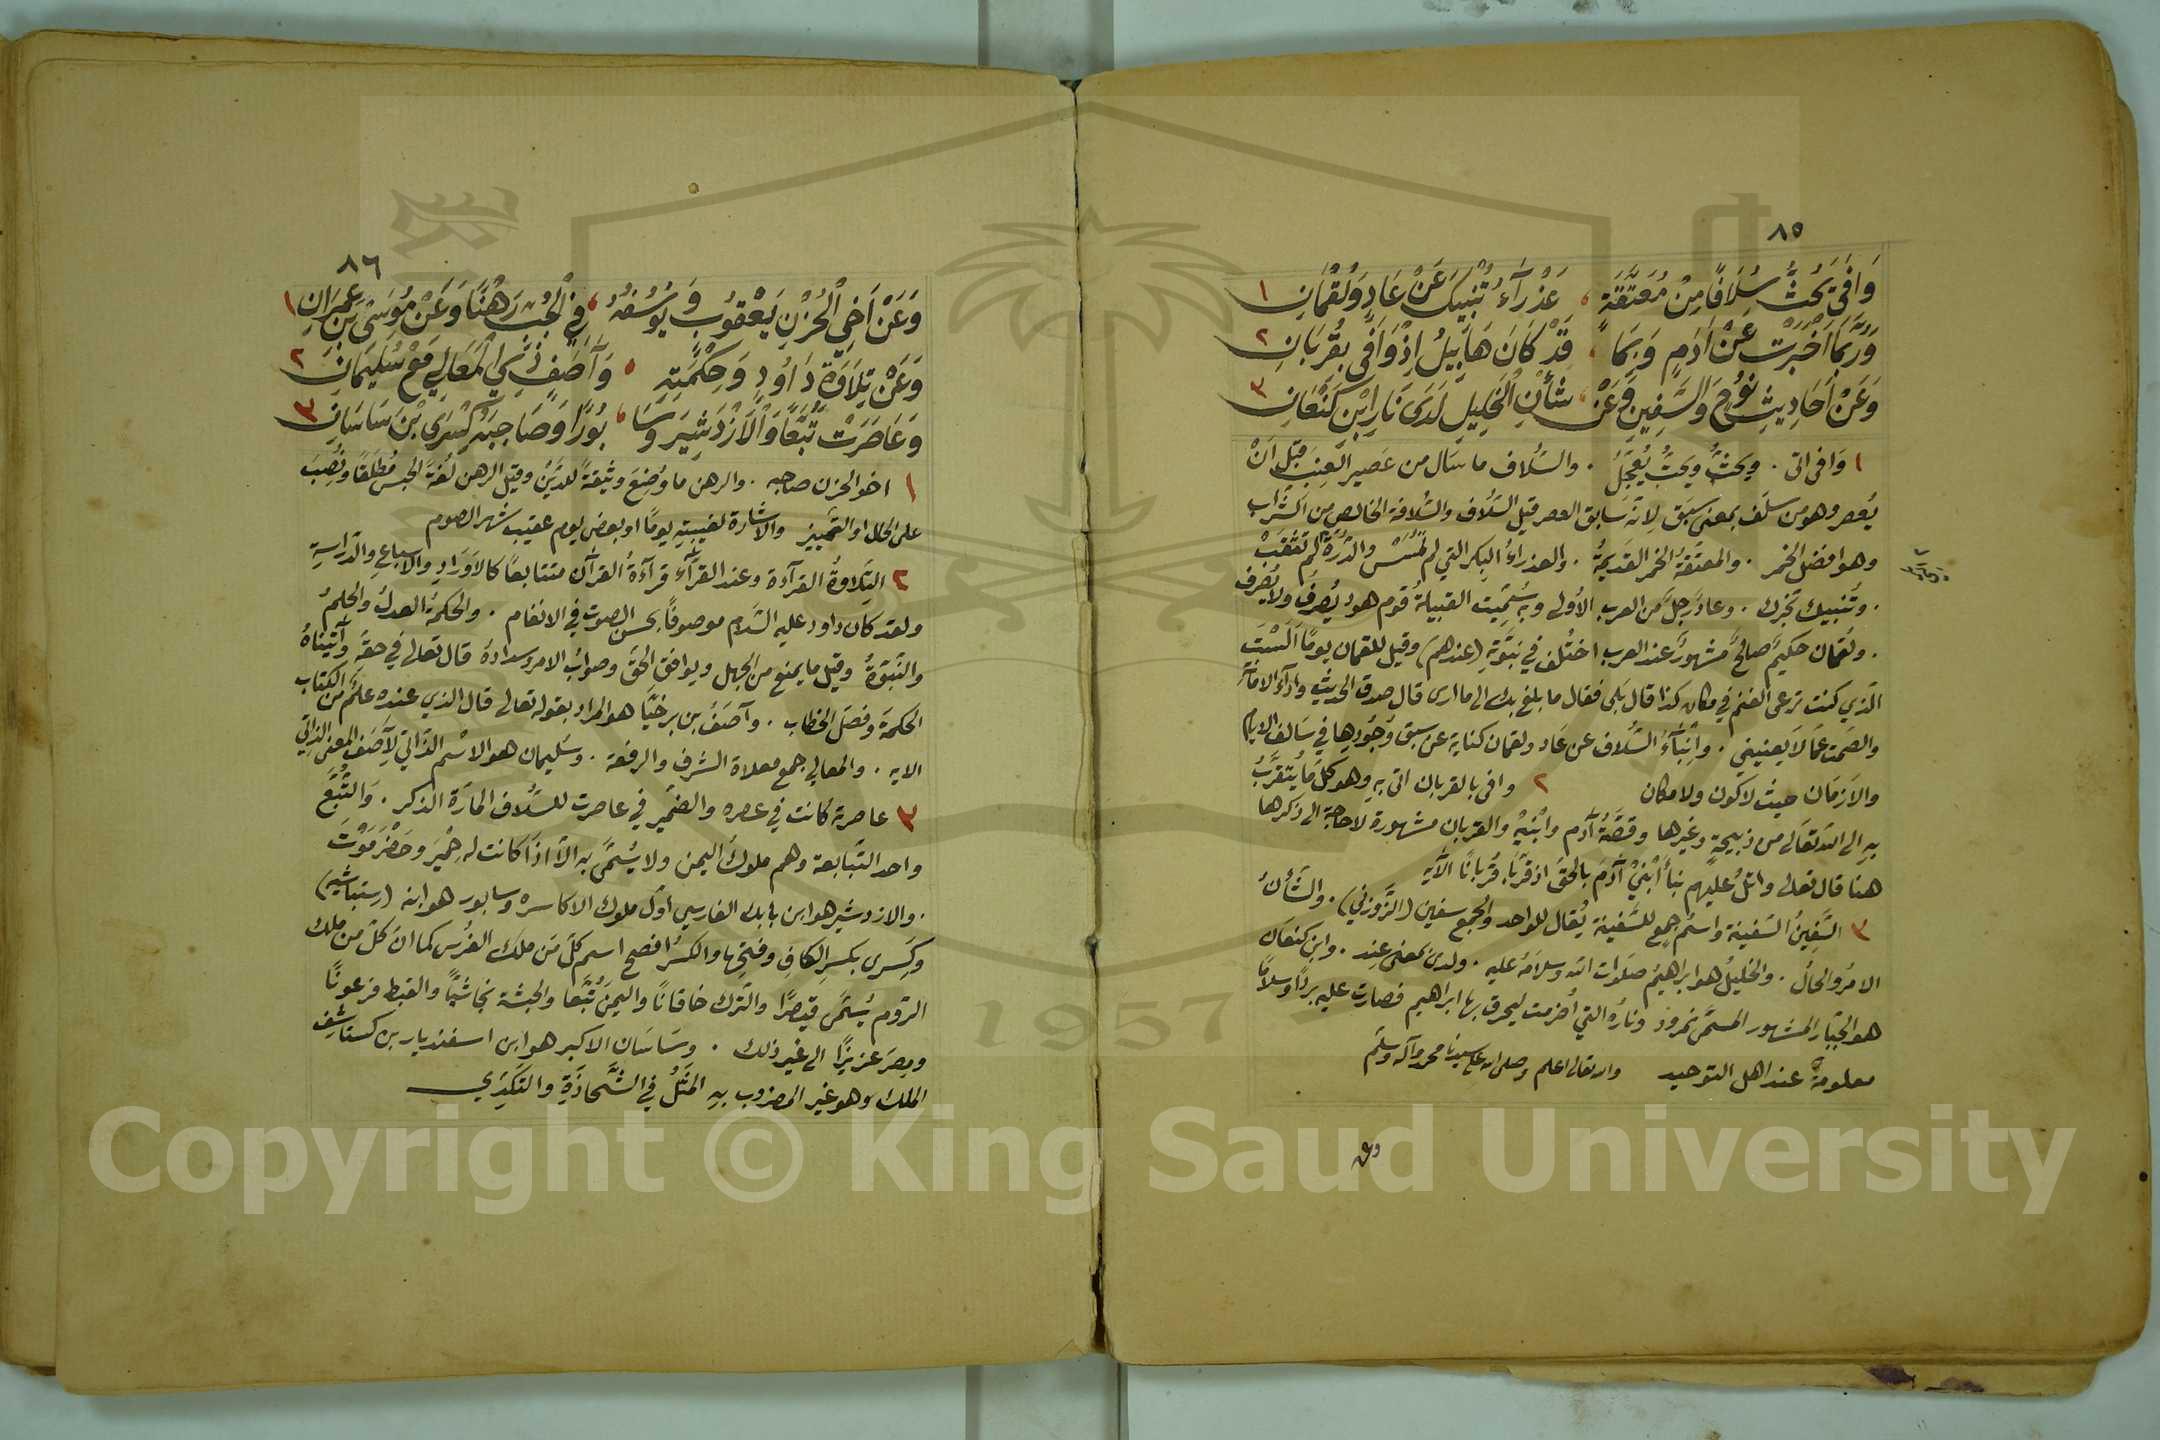 ٨٥
وَافَى يَحُثُّ سُلَافًا مِنْ مُعَتَّقَةٍ ، عَذْرَاءُ تُنْبِيكَ عَنْ عَادٍ وَلُقْمَانِ ١
وَرُبَّمَا أَخْبَرَتْ عَنْ آدَمٍ وَبِمَا ، قَدْ كَانَ هَابِيلُ إِذْ وَافَى بِقُرْبَانِ ٢
وَعَنْ أَحَادِيثِ نُوحٍ وَالسَّفِينِ وَعَنْ ، شَأْنِ الْخَلِيلِ لَدَى نَارِ ابْنِ كَنْعَانِ ٣
١ وَافى اتى . ويحثّ ويحثُّ يُعجّلُ . والسُّلاف ما سَال من عَصير العِنَب قبل اَنْ
يُعصر وهو من سلَف بمعنى سَبَق لِانّه سَابق العصر قيل السُّلاف والسُّلافة الخالصِ من الشَّراب
وهو افضل الخمر . والمعتّقة الخمر القديمةُ . والعذراءُ البكر التي لم تُمَسّ والدُّرَّةُ لم تُثقَبْ
. وتُنبيك تخبرك . وعاد رجلٌ من العرب الأولى وبه سُمِّيت القبيلةُ قوم هود يُصرفُ ولا يُصرف
. ولقمان حكيمٌ صالحٌ مشهورٌ عند العرب اختُلف في نبوَّتِه (عندهم) وقيل للقمان يومًا اَلَسْتَ
الّذي كنت ترعى الغنم في مكان كذا قال بَلى فقال ما بلغ بك الى ما ارى قال صدق الحديث واداءُ الامانة
والصّمت عمّا لا يعنيني . وانباءُ السُّلاف عن عَاد ولقمان كناية عن سبق وُجُودها في سَالف الايام
والاَزمَان حيث لا كون ولا مكان ٢ وافى بالقربان اتى بهِ وهو كلّ ما يُتقرَّبُ
بهِ الى الله تعَالى من ذبيحةٍ وغيرها وقصّةُ آدم وابنَيْهِ والقربان مشهورة لاحاجة الى ذكرها
هنا قال تعالى واتلُ عليهم نبأ ابْنَيْ آدَمَ بالحقّ اذ قرّبَا قُربانًا الآيه
٣ السَّفِينُ السّفينة واسمُ جمع للسَّفينة يُقال للواحد والجمع سفين (الزَّوزني) . والشَّأنُ
الامرُ والحالُ . والخليلُ هو ابراهيمُ صلوات الله وسلامهُ عليه . ولدى بمعنى عِند . وابن كنعان
هو الجبّار المشهور المسمّى نمرود ونارهُ التي اُضرمت ليحرق بها ابراهيم فصارت عليه بردًا وسلامًا
معلومةٌ عند اهل التوحيد والله تعالى اعلم وصلى الله على سيدنا محمد وآله وسلم
٨٦
وَعَنْ أَخِي الْحُزْنِ يَعْقُوبٍ وَيُوسُفُهُ ، فِي الْجُبِّ رَهْنًا وَعَنْ مُوسَى بْنِ عِمْرَانِ ١
وَعَنْ تِلَاوَةِ دَاوُدٍ وَحِكْمَتِهِ ، وَآصَفٍ ذِي الْمَعَالِي مَعْ سُلَيْمَانِ ٢
وَعَاصَرَتْ تُبَّعًا وَالْأَزْدَشِيرَ وَسَا ، بُورًا وَصَاحِبَهُ كِسْرَى بْنَ سَاسَانِ ٣
١ اخو الحزن صاحبه . والرهن ما وُضِعَ وثيقةً للدَّيْنِ وقيل الرهن لُغَةً الحبس مُطلقًا ونُصِبَ
على الحال او التّمييز والاشارة لغيبتهِ يومًا او بعض يوم عقيب شهر الصوم
٢ التِّلاوةُ القرآءة وعند القرآء قرآءَةُ القرآن متتابعًا كالاَوراد والاسباع والدّراسةِ
ولقد كان داود عليه السَّلام موصوفًا بحسن الصوت في الانغام . والحكمةُ العدلُ والحلمُ
والنّبوّةُ وقيل ما يمنع من الجهل ويوافق الحقّ وصوابُ الامر وسدادهُ قال تعالى في حقّه وآتيناهُ
الحكمةَ وفصلَ الخطاب . وآصَفُ بن برخيّا هو المراد بقوله تعالى قال الذي عنده علمٌ من الكتاب
الايه . والمعالي جمع معلاة الشرف والرفعة . وسليمان هو الاسم الذّاتي لآصَف المعنى الذاتي
٣ عاصرته كانت في عصره والضّمير في عاصرت للسُّلاف المارّة الذكر . والتُّبَّع
واحد التّبابعة وهم ملوك اليمن ولا يُسمّى به الاّ اذا كانت له حِمْيَر وحَضْرَمَوْت
. والازدشير هو ابن بابك الفارسي اوّل ملوك الاكاسره وسابور هو ابنه
وكِسرى بكسر الكاف وفتحها والكسرُ افصح اسم كلّ مَن ملك الفُرس كما انّ كلّ من ملك
الرّوم يُسمّى قيصرًا والتّرك خاقانًا واليمنَ تُبّعًا والحبشة نجاشيًّا والقبط فرعونًا
ومِصرَ عزيزًا الى غير ذلك . وسَاسَان الاكبر هو ابن اسفنديار بن كستاشف
الملك وهو غير المضروب بهِ المَثَلُ في الشّحَاذَةِ والتّكدّي
Copyright © King Saud University
1957